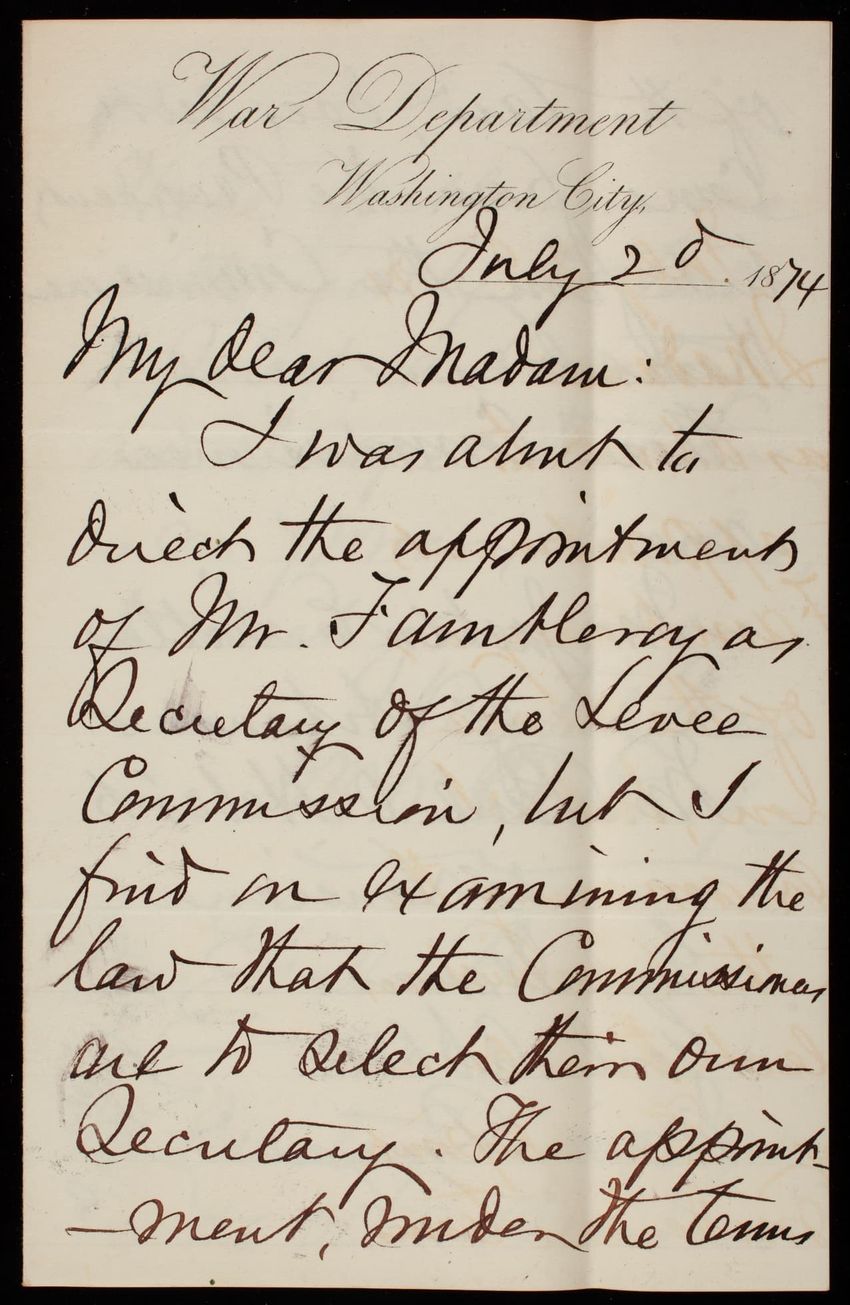 War Department
Washington City,
July 2d. 1874
My dear Madam:
I was about to
direct the appointment
of Mr. Fauntleroy as
Secretary of the Levee
Commission, but I
find on examining the
law that the Commissioners
are to select their own
Secretary. The appoint-
-ment, under the terms